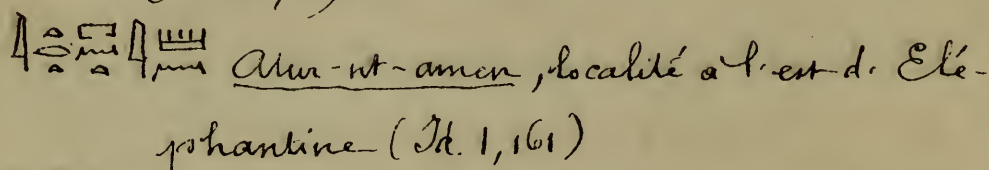 𓇋𓏠𓈖 Atur-nt-amen, localité à l'est d. Elé-
phantine (Id. 1, 161)